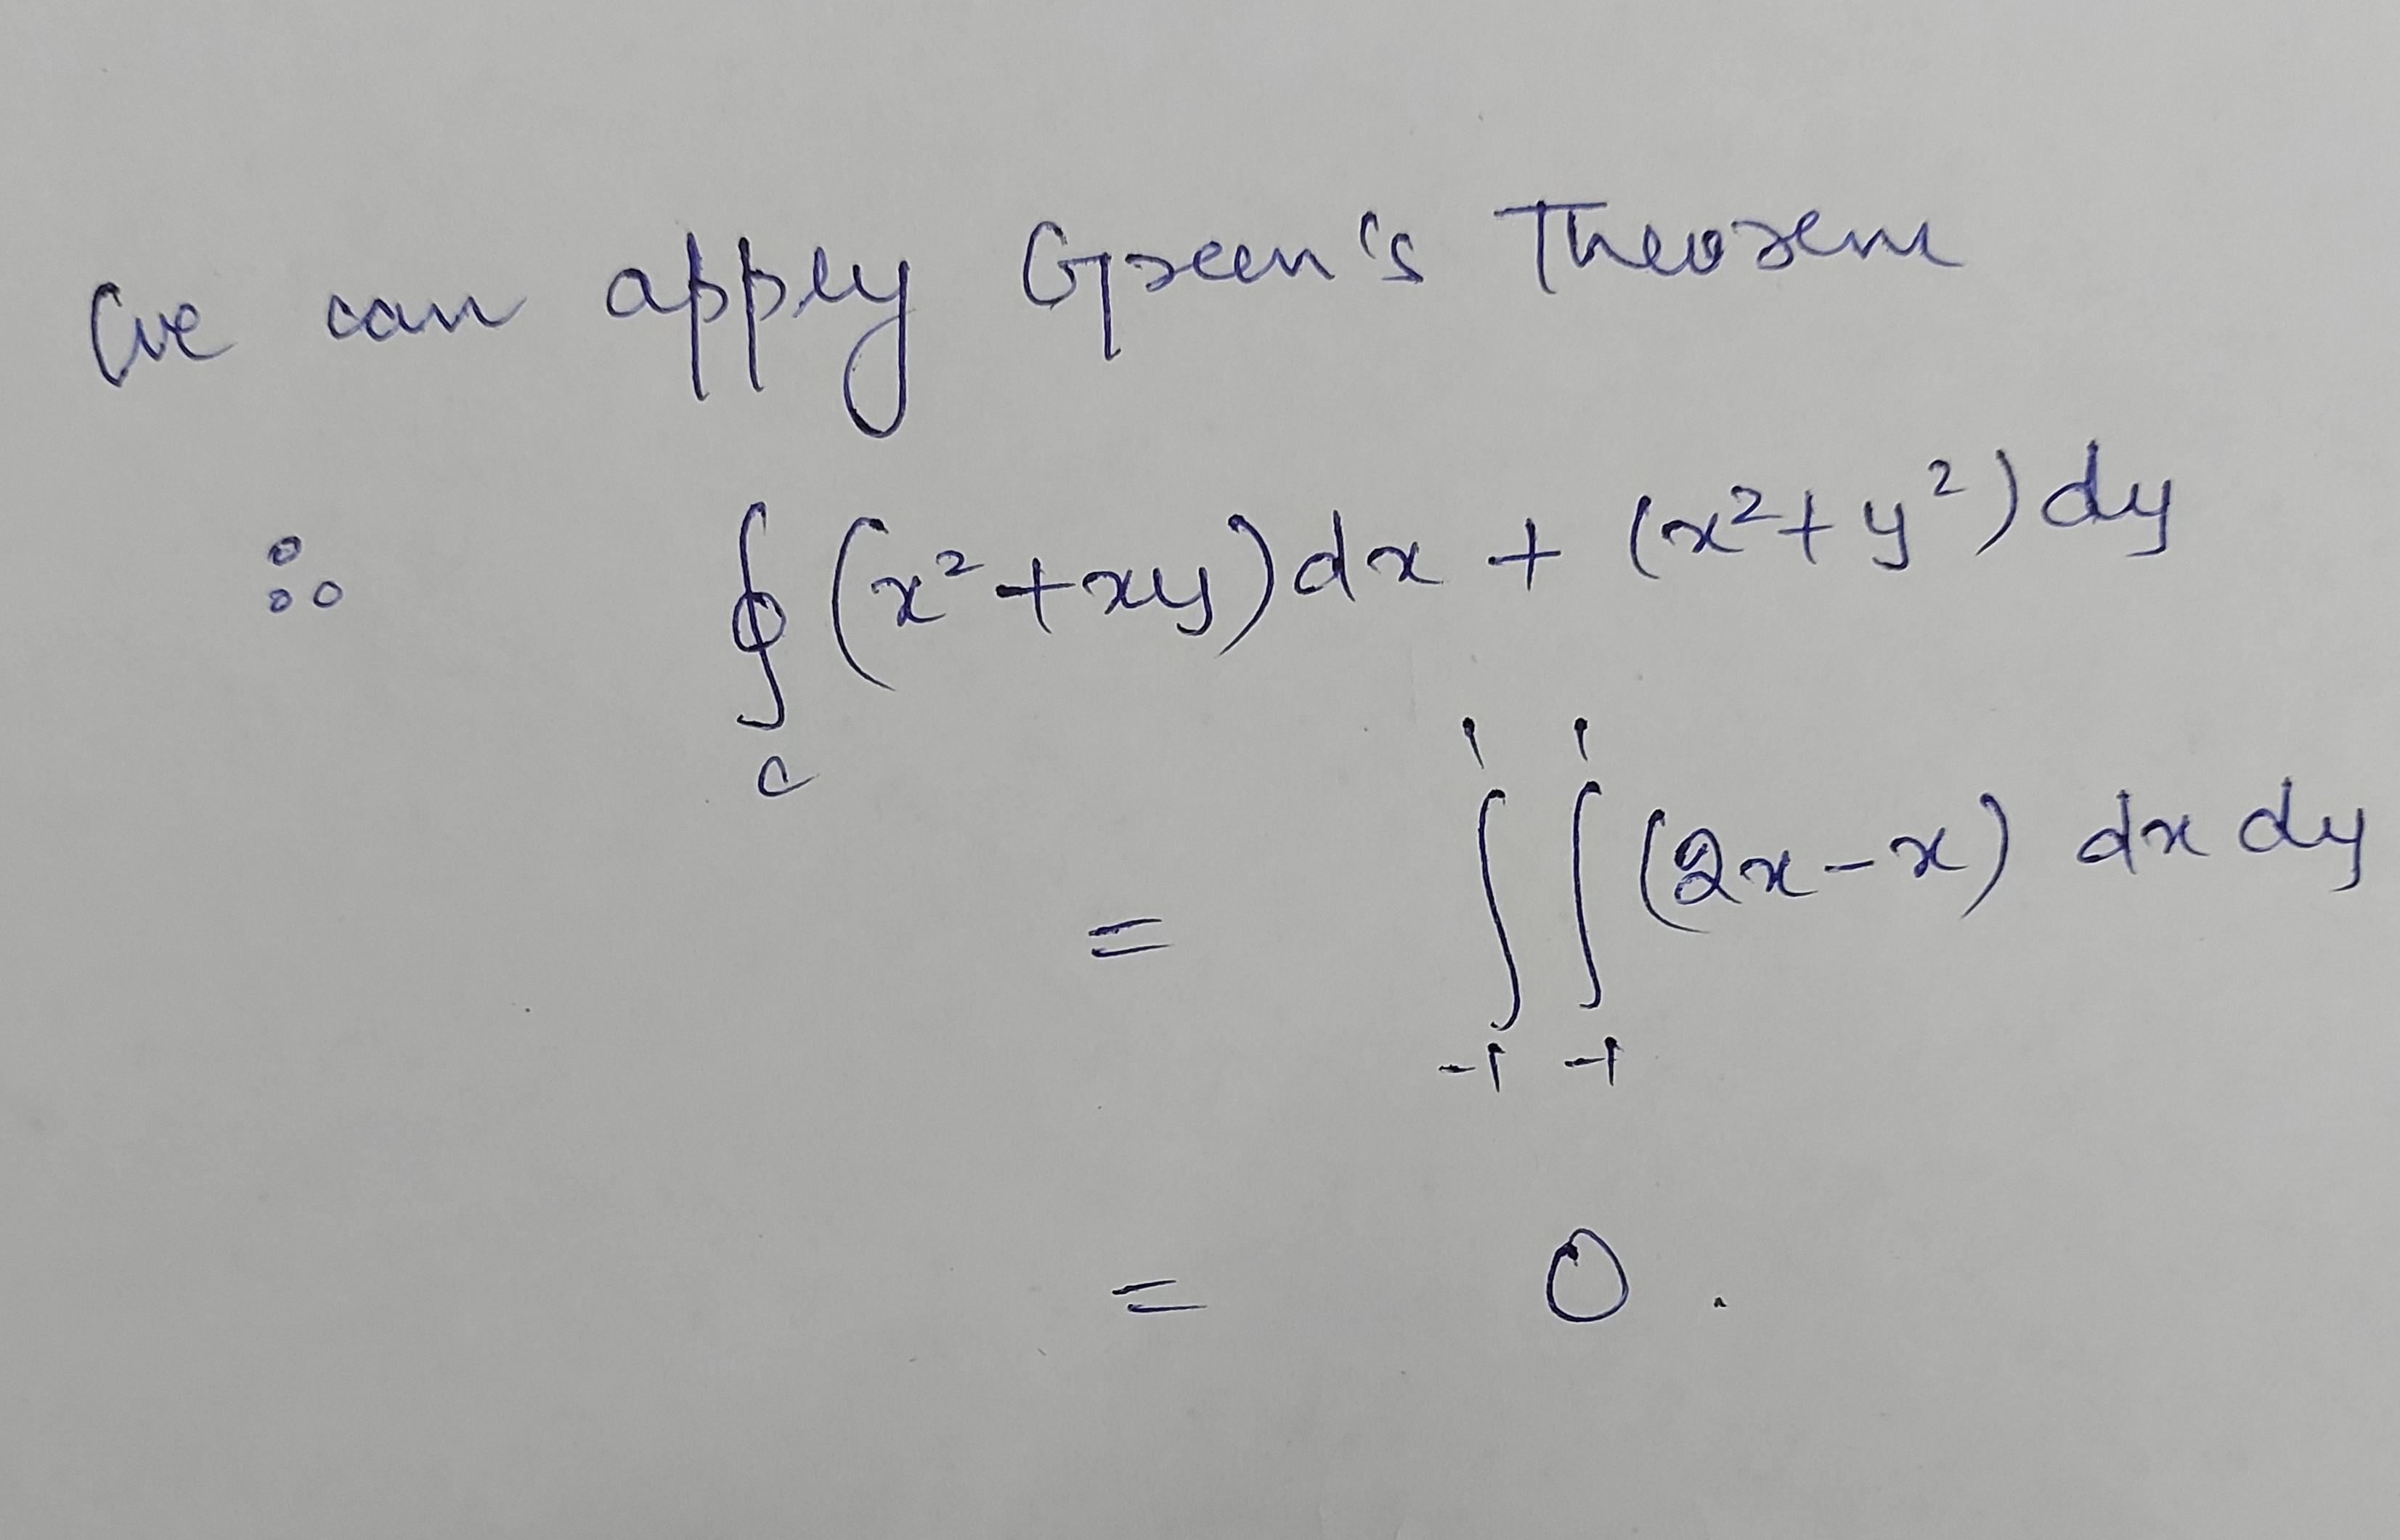 We can apply Green's Theorem
∴ ∮_C (x² + xy) dx + (x² + y²) dy
= ∫_{-1}^{1} ∫_{-1}^{1} (2x - x) dx dy
= 0.